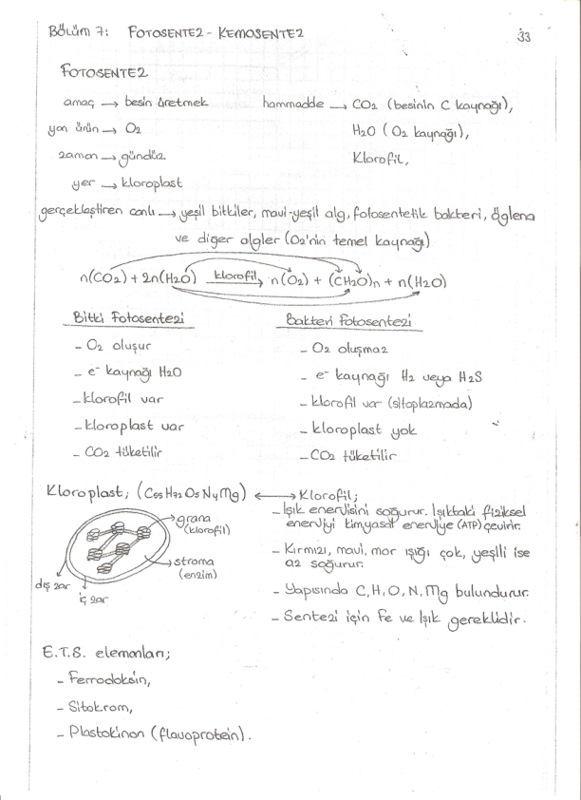 BÖLÜM 7: FOTOSENTEZ - KEMOSENTEZ 33
FOTOSENTEZ
amaç → besin üretmek hammadde → CO2 (besinin C kaynağı),
yan ürün → O2 H2O (O2 kaynağı),
zaman → gündüz Klorofil,
yer → kloroplast
gerçekleştiren canlı → yeşil bitkiler, mavi-yeşil alg, fotosentetik bakteri, öglena
ve diğer algler (O2'nin temel kaynağı)
n(CO2) + 2n(H2O) klorofil→ n(O2) + (CH2O)n + n(H2O)
Bitki Fotosentezi Bakteri Fotosentezi
- O2 oluşur - O2 oluşmaz
- e⁻ kaynağı H2O - e⁻ kaynağı H2 veya H2S
- klorofil var - klorofil var (sitoplazmada)
- kloroplast var - kloroplast yok
- CO2 tüketilir - CO2 tüketilir
Kloroplast; (C55H72O5N4Mg) ↔ Klorofil;
- Işık enerjisini soğurur. Işıktaki fiziksel
enerjiyi kimyasal enerjiye (ATP) çevirir.
- Kırmızı, mavi, mor ışığı çok, yeşili ise
az soğurur.
- Yapısında C, H, O, N, Mg bulundurur.
- Sentezi için Fe ve Işık gereklidir.
grana
(klorofil)
stroma
(enzim)
dış zar
iç zar
E.T.S. elemanları;
- Ferrodoksin,
- Sitokrom,
- Plastokinon (flavoprotein).